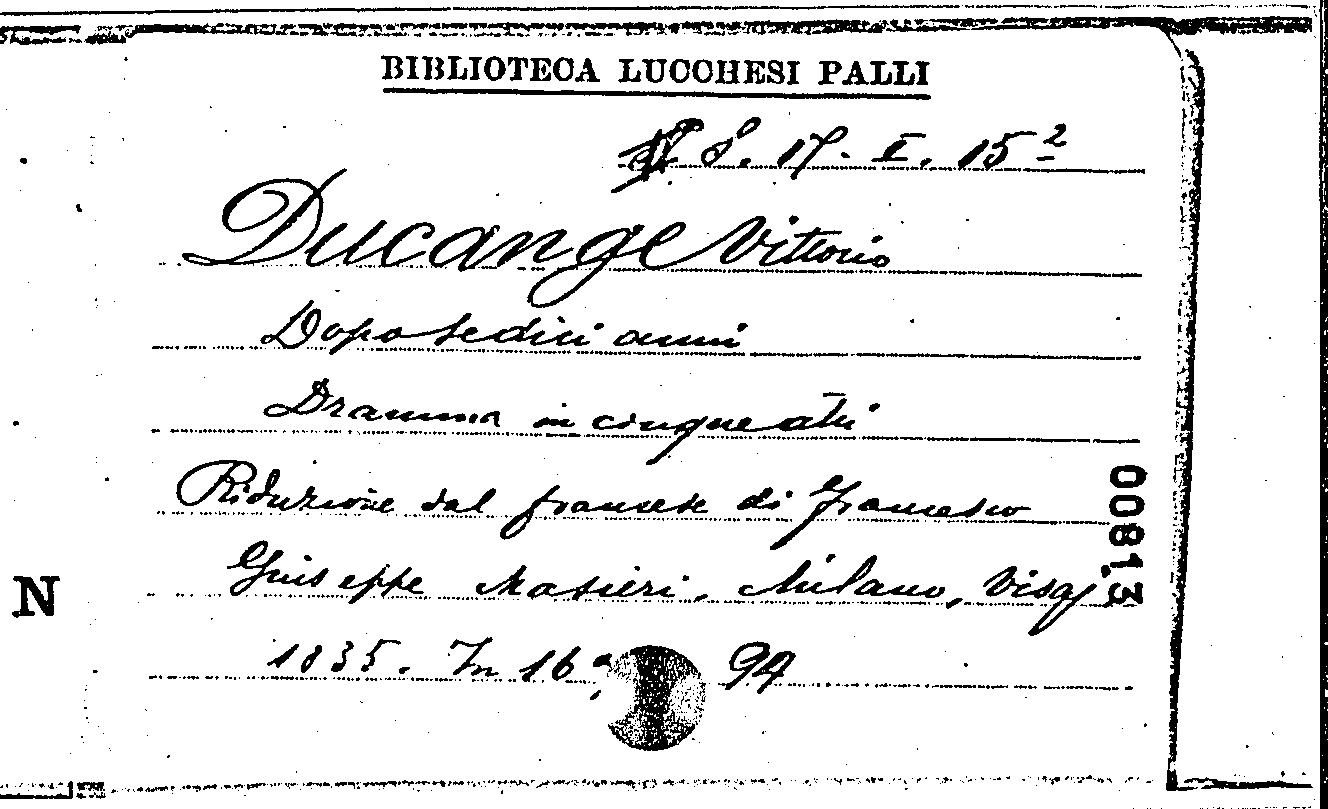 BIBLIOTECA LUCCHESI PALLI
S. 17. I. 15²
Ducange Vittorio
Dopo sedici anni
Dramma in cinque atti
Riduzione dal francese di Francesco
Giuseppe Masieri. Milano, Visaj,
1835. In 16º, 94
00813
N